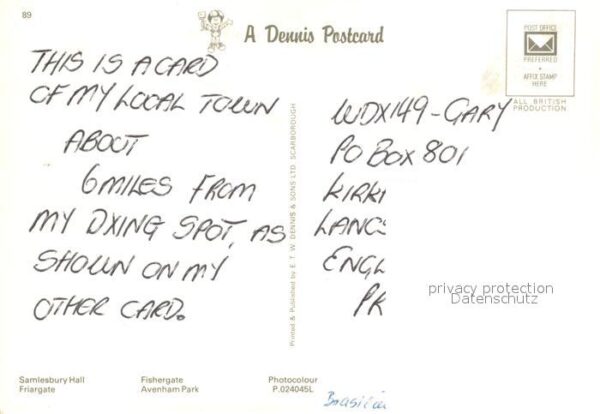 89
A Dennis Postcard
POST OFFICE
PREFERRED
AFFIX STAMP
HERE
ALL BRITISH
PRODUCTION
THIS IS A CARD
OF MY LOCAL TOWN
ABOUT
6 MILES FROM
MY DXING SPOT, AS
SHOWN ON MY
OTHER CARD.
Printed & Published by E. T. W. DENNIS & SONS LTD. SCARBOROUGH
WDX149-GARY
PO BOX 801
KIRK
LANCS
ENGL
PR
privacy protection
Datenschutz
Samlesbury Hall
Friargate
Fishergate
Avenham Park
Photocolour
P.024045L